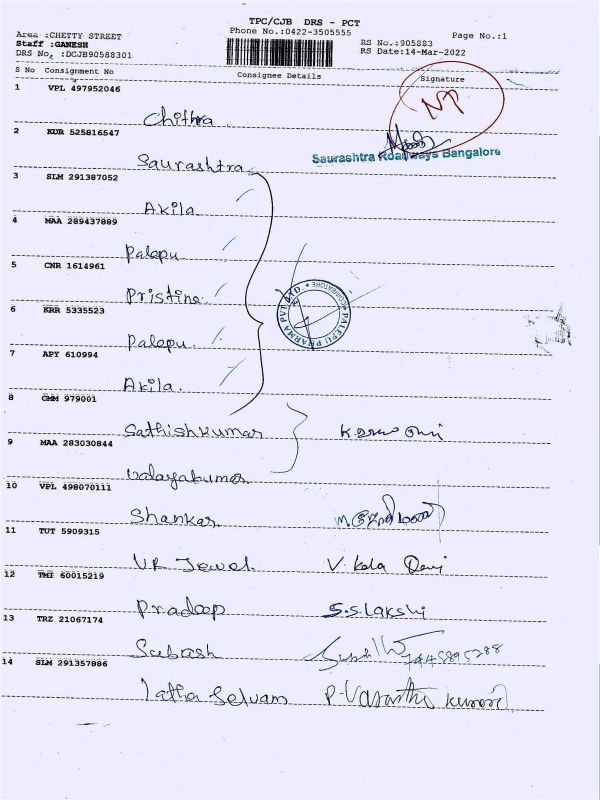 TPC/CJB DRS - PCT
Area :CHETTY STREET Phone No.:0422-3505555 Page No.:1
Staff :GANESH RS No.:905883
DRS No. :DCJB90588301 RS Date:14-Mar-2022
S No Consignment No Consignee Details Signature
1 VPL 497952046
Chithra NP
2 KUR 525816547
Saurashtra Saurashtra Roadways Bangalore
3 SLM 291387052
Akila
4 MAA 289437889
Palepu
5 CNR 1614961
Pristine
PALEPU PHARMA PVT LTD. * COIMBATORE *
6 KRR 5335523
Palepu
7 APY 610994
Akila
8 CMM 979001
Sathishkumar
9 MAA 283030844
Udayakumar
10 VPL 498070111
Shankar
11 TUT 5909315
UR Jewel V. Kala Devi
12 TMI 60015219
Pradeep S.S. Lakshi
13 TRZ 21067174
Subash
14 SLM 291357886
Latha Selvam P. Vasantha Kumari